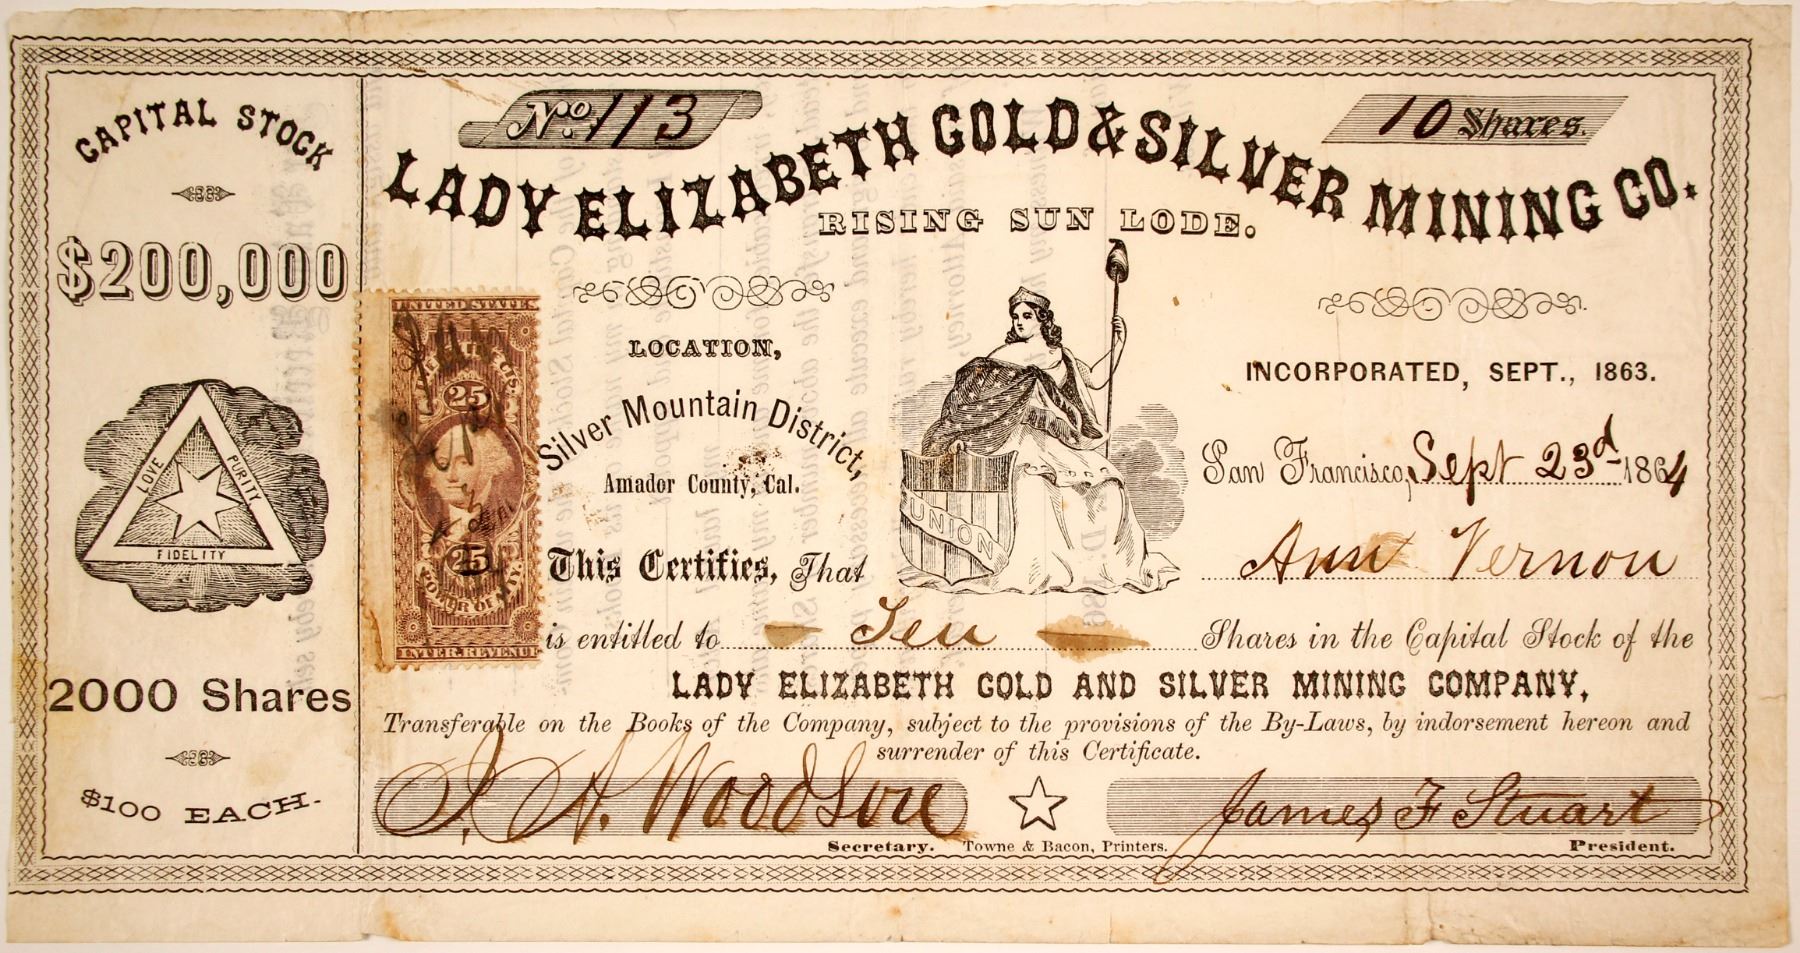 CAPITAL STOCK
$200,000
LOVE
PURITY
FIDELITY
2000 Shares
$100 EACH.
No. 113
10 Shares.
LADY ELIZABETH GOLD & SILVER MINING CO.
RISING SUN LODE.
UNITED STATES
25
25
POWER OF AT'Y.
INTER. REVENUE
LOCATION,
Silver Mountain District,
Amador County, Cal.
UNION
INCORPORATED, SEPT., 1863.
San Francisco, Sept 23d 1864
This Certifies, That Ann Vernon
is entitled to Ten Shares in the Capital Stock of the
LADY ELIZABETH GOLD AND SILVER MINING COMPANY,
Transferable on the Books of the Company, subject to the provisions of the By-Laws, by indorsement hereon and
surrender of this Certificate.
A. Woodson
James F Stuart
Secretary.
Towne & Bacon, Printers.
President.